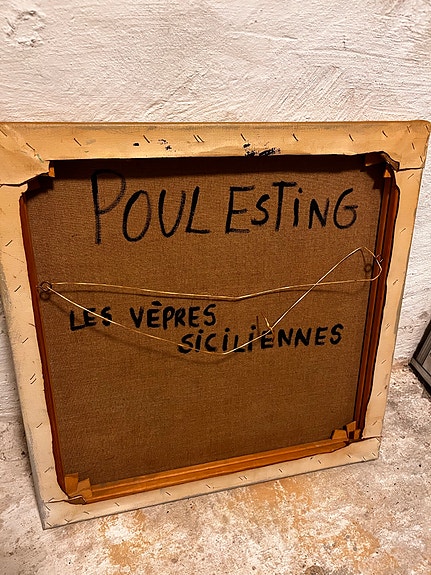 POUL ESTING
LES VÊPRES
SICILIENNES